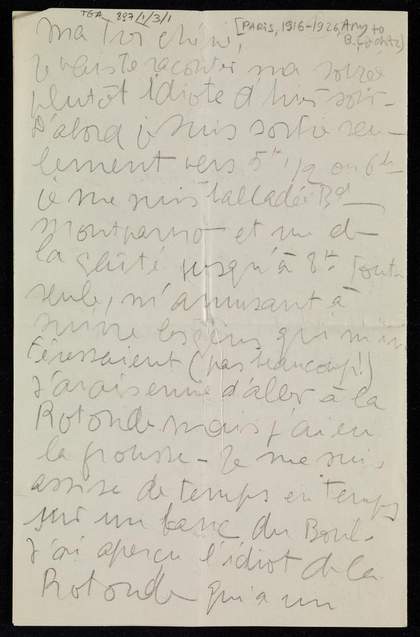 TGA 897/1/3/1
[PARIS, 1916-1926, Amy to
B.
Ma
Je vais te raconter ma soirée
plutôt idiote d'hier soir.
D'abord je suis sortie seu-
lement vers 5h 1/2 ou 6h
je me suis balladée Bd
Montparno et rue de
la Gaîté jusqu'à 8h toute
seule, m'amusant à
suivre les gens qui m'in
téressaient (pas beaucoup!)
J'avais envie d'aller à la
Rotonde mais j'ai eu
la frousse - Je me suis
assise de temps en temps
sur un banc du Boul.
J'ai aperçu l'idiot de la
Rotonde qui a un